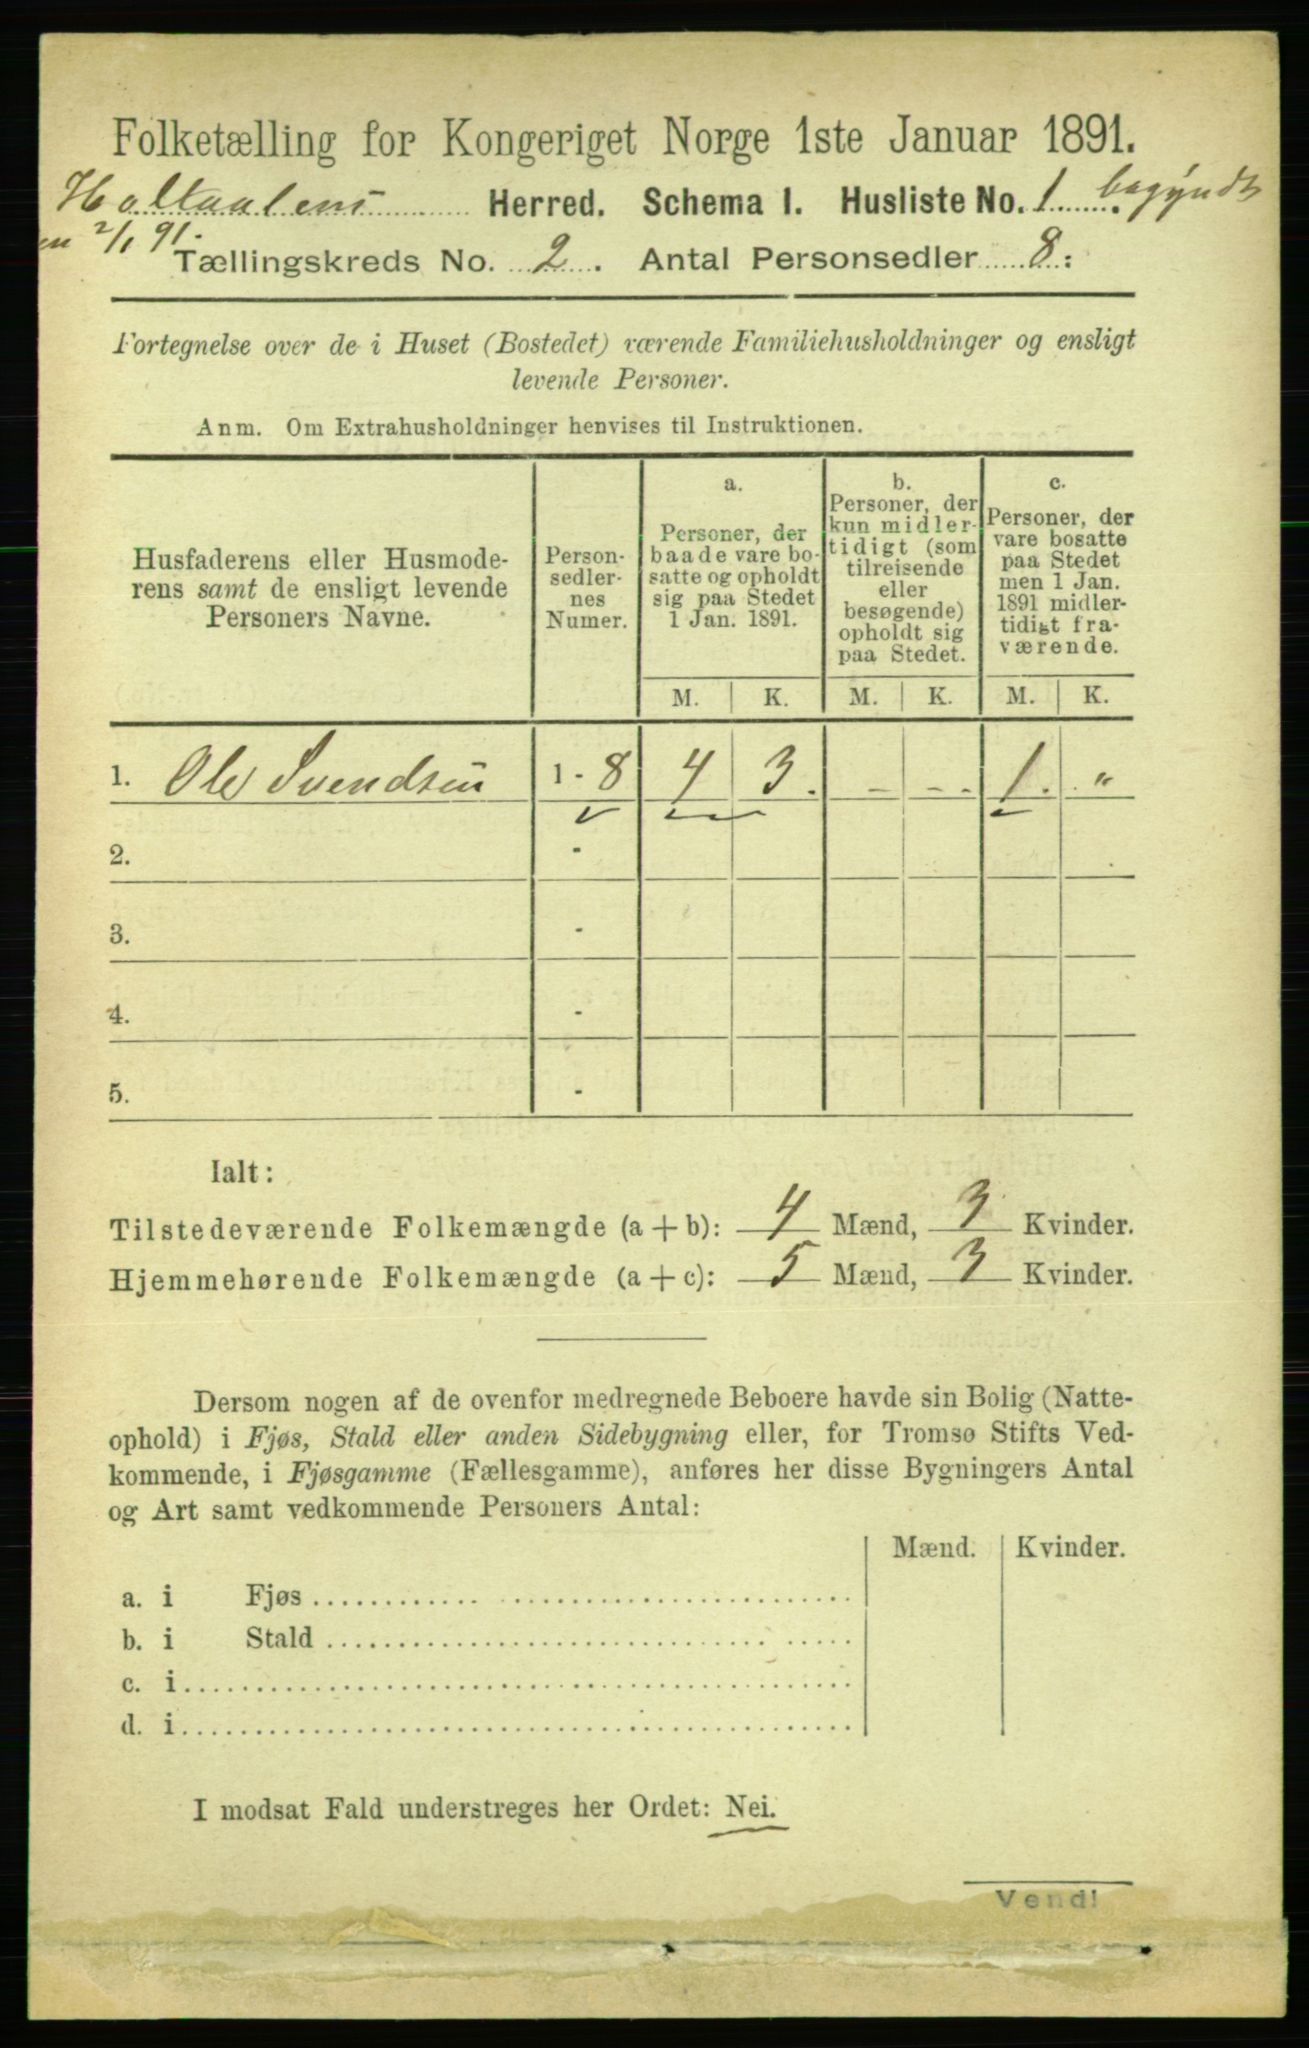 Folketælling for Kongeriget Norge 1ste Januar 1891.
Holtaalens Herred. Schema I. Husliste No. 1. begyndt
en 2/1 91.
Tællingskreds No. 2. Antal Personsedler 8:
Fortegnelse over de i Huset (Bostedet) værende Familiehusholdninger og ensligt
levende Personer.
Anm. Om Extrahusholdninger henvises til Instruktionen.
Husfaderens eller Husmode-
rens samt de ensligt levende
Personers Navne.
Person-
sedler-
nes
Numer.
a.
Personer, der
baade vare bo-
satte og opholdt
sig paa Stedet
1 Jan. 1891.
b.
Personer, der
kun midler-
tidigt (som
tilreisende
eller
besøgende)
opholdt sig
paa Stedet.
c.
Personer, der
vare bosatte
paa Stedet
men 1 Jan.
1891 midler-
tidigt fra-
værende.
M. K. M. K. M. K.
1. Ole Svendsen 1 - 8 4 3. - - - 1. "
2. -
3. -
4. -
5. -
Ialt:
Tilstedeværende Folkemængde (a + b): 4 Mænd, 3 Kvinder.
Hjemmehørende Folkemængde (a + c): 5 Mænd, 3 Kvinder.
Dersom nogen af de ovenfor medregnede Beboere havde sin Bolig (Natte-
ophold) i Fjøs, Stald eller anden Sidebygning eller, for Tromsø Stifts Ved-
kommende, i Fjøsgamme (Fællesgamme), anføres her disse Bygningers Antal
og Art samt vedkommende Personers Antal:
Mænd. Kvinder.
a. i Fjøs
b. i Stald
c. i
d. i
I modsat Fald understreges her Ordet: Nei.
Vend!